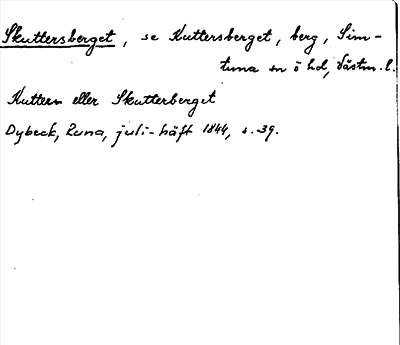 Skuttersberget, se Kuttersberget, berg, Sim-
tuna sn ö hd, Västm. l.
Kuttern eller Skutterberget
Dybeck, Runa, juli-häft 1844, s. 39.